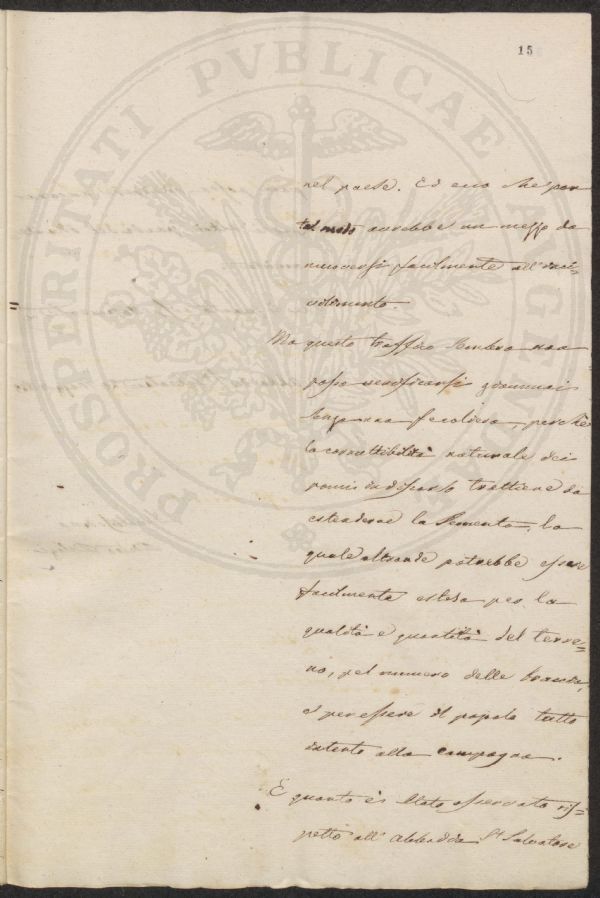 15
PROSPERITATI PVBLICAE AVGENDAE
nel paese. Ed ecco che por
tal modo avrebbe un mezzo da
muoversi facilmente all'inci-
vilimento.
Ma questo traffico sembra non
possa verificarsi giammai
senza una fecoliera, perchè
la corruttibilità naturale dei
pomi da discorso trattiene da
estenderne la sementa, la
quale altronde potrebbe essere
facilmente estesa per la
qualità e quantità del terre=
no, pel numero delle braccia,
e per essere il popolo tutto
intento alla campagna.
E quanto è stato osservato ris=
petto all'Abbadia S.t Salvatore